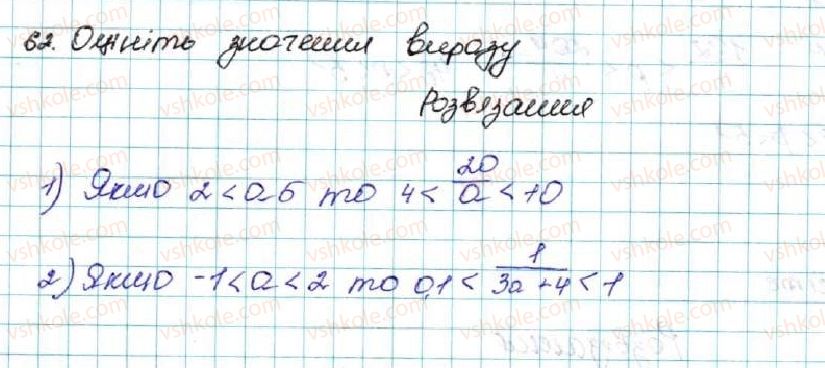 62. Оцініть значення виразу
Розвязання
1) Якщо 2 < a 5 то 4 < 20/a < 10
2) Якщо -1 < a < 2 то 0,1 < 1/(3a + 4) < 1